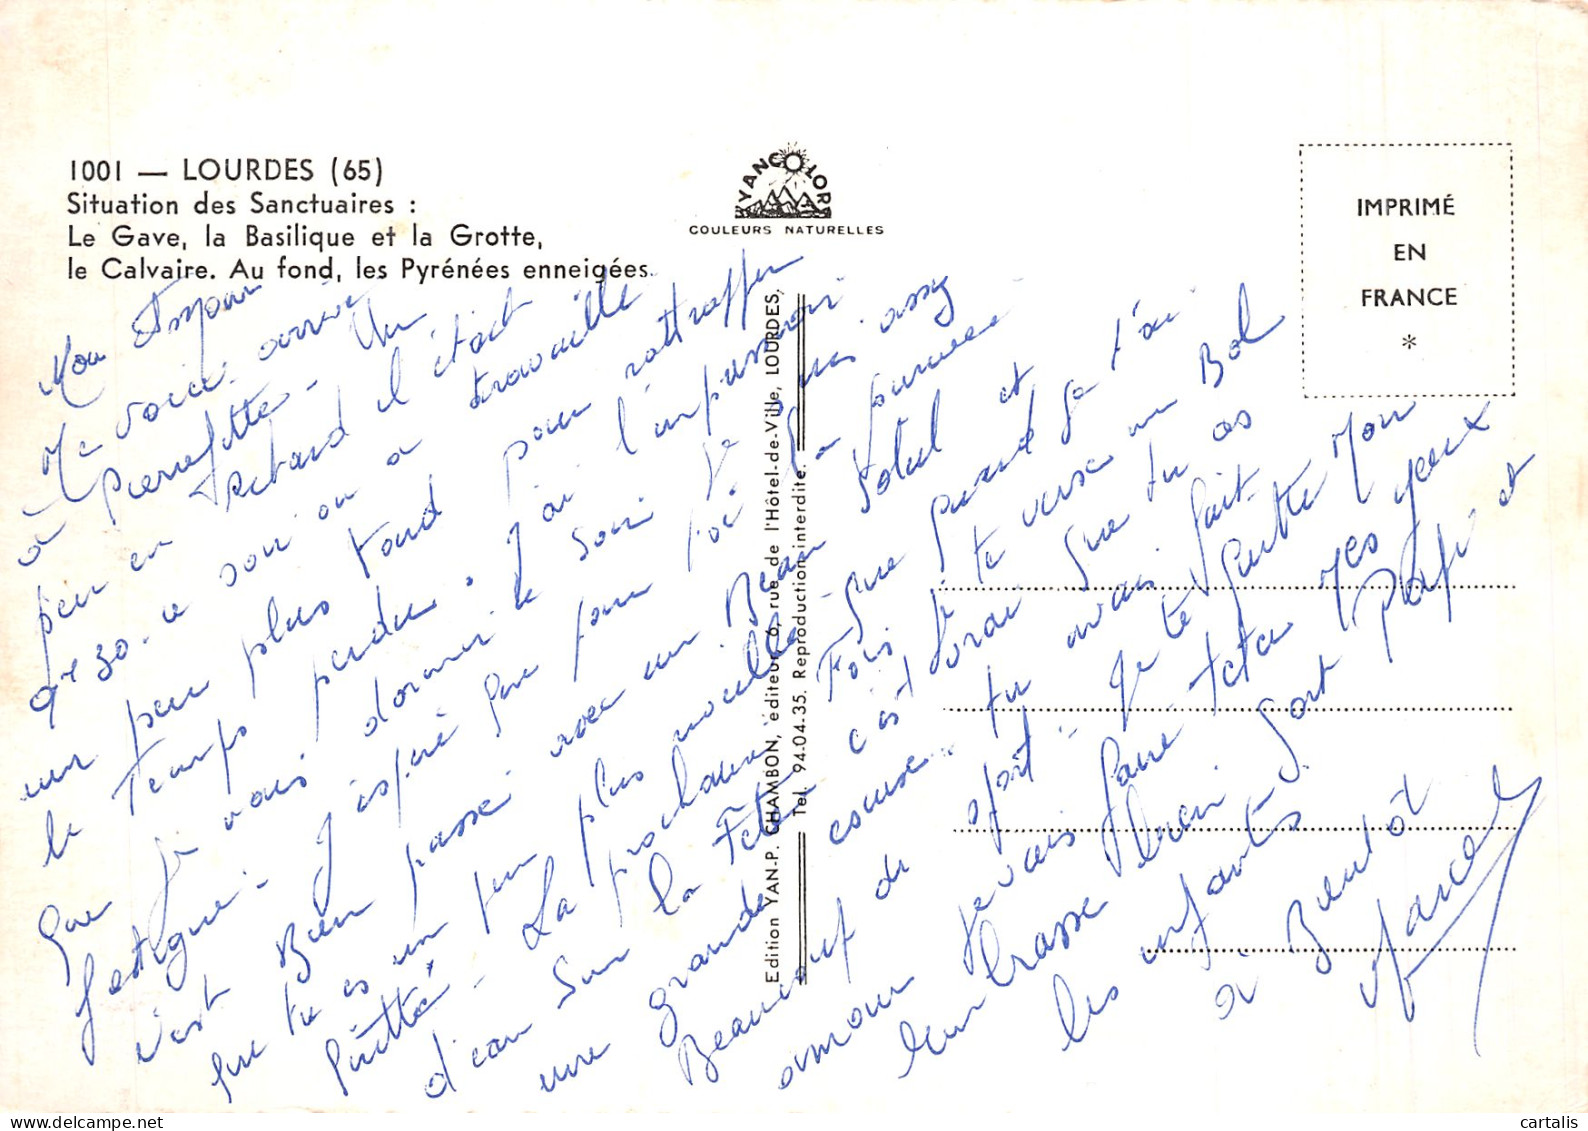 1001 — LOURDES (65)
Situation des Sanctuaires :
Le Gave, la Basilique et la Grotte,
le Calvaire. Au fond, les Pyrénées enneigées.
YANCOLOR
COULEURS NATURELLES
IMPRIMÉ
EN
FRANCE
*
Edition YAN-P. CHAMBON, éditeur, 6, rue de l'Hôtel-de-Ville, LOURDES,
Tel. 94.04.35. Reproduction interdite.
Mon Amour
Me voici arrivé
à Pierrefitte - Un
peu en Retard il était
30 - ce soir on a travaillé
un peu plus tard pour rattrapper
le temps perdu. J'ai l'impression
que je vais dormir le soir je suis assez
fatigué - J'espère que pour toi la journée
c'est Bien passé avec un Beau Soleil et
que tu es un peu plus mouillé que quand je t'ai
quitté - La prochaine Fois je te verse un Bol
d'eau sur la Tête c'est vrai que tu as
une grande course tu avais fait
Beaucoup de sport - Je te quitte Mon
amour je vais faire Mes yeux
leur brasse bien fort Papi et
les enfants
a Bientôt
Marcel